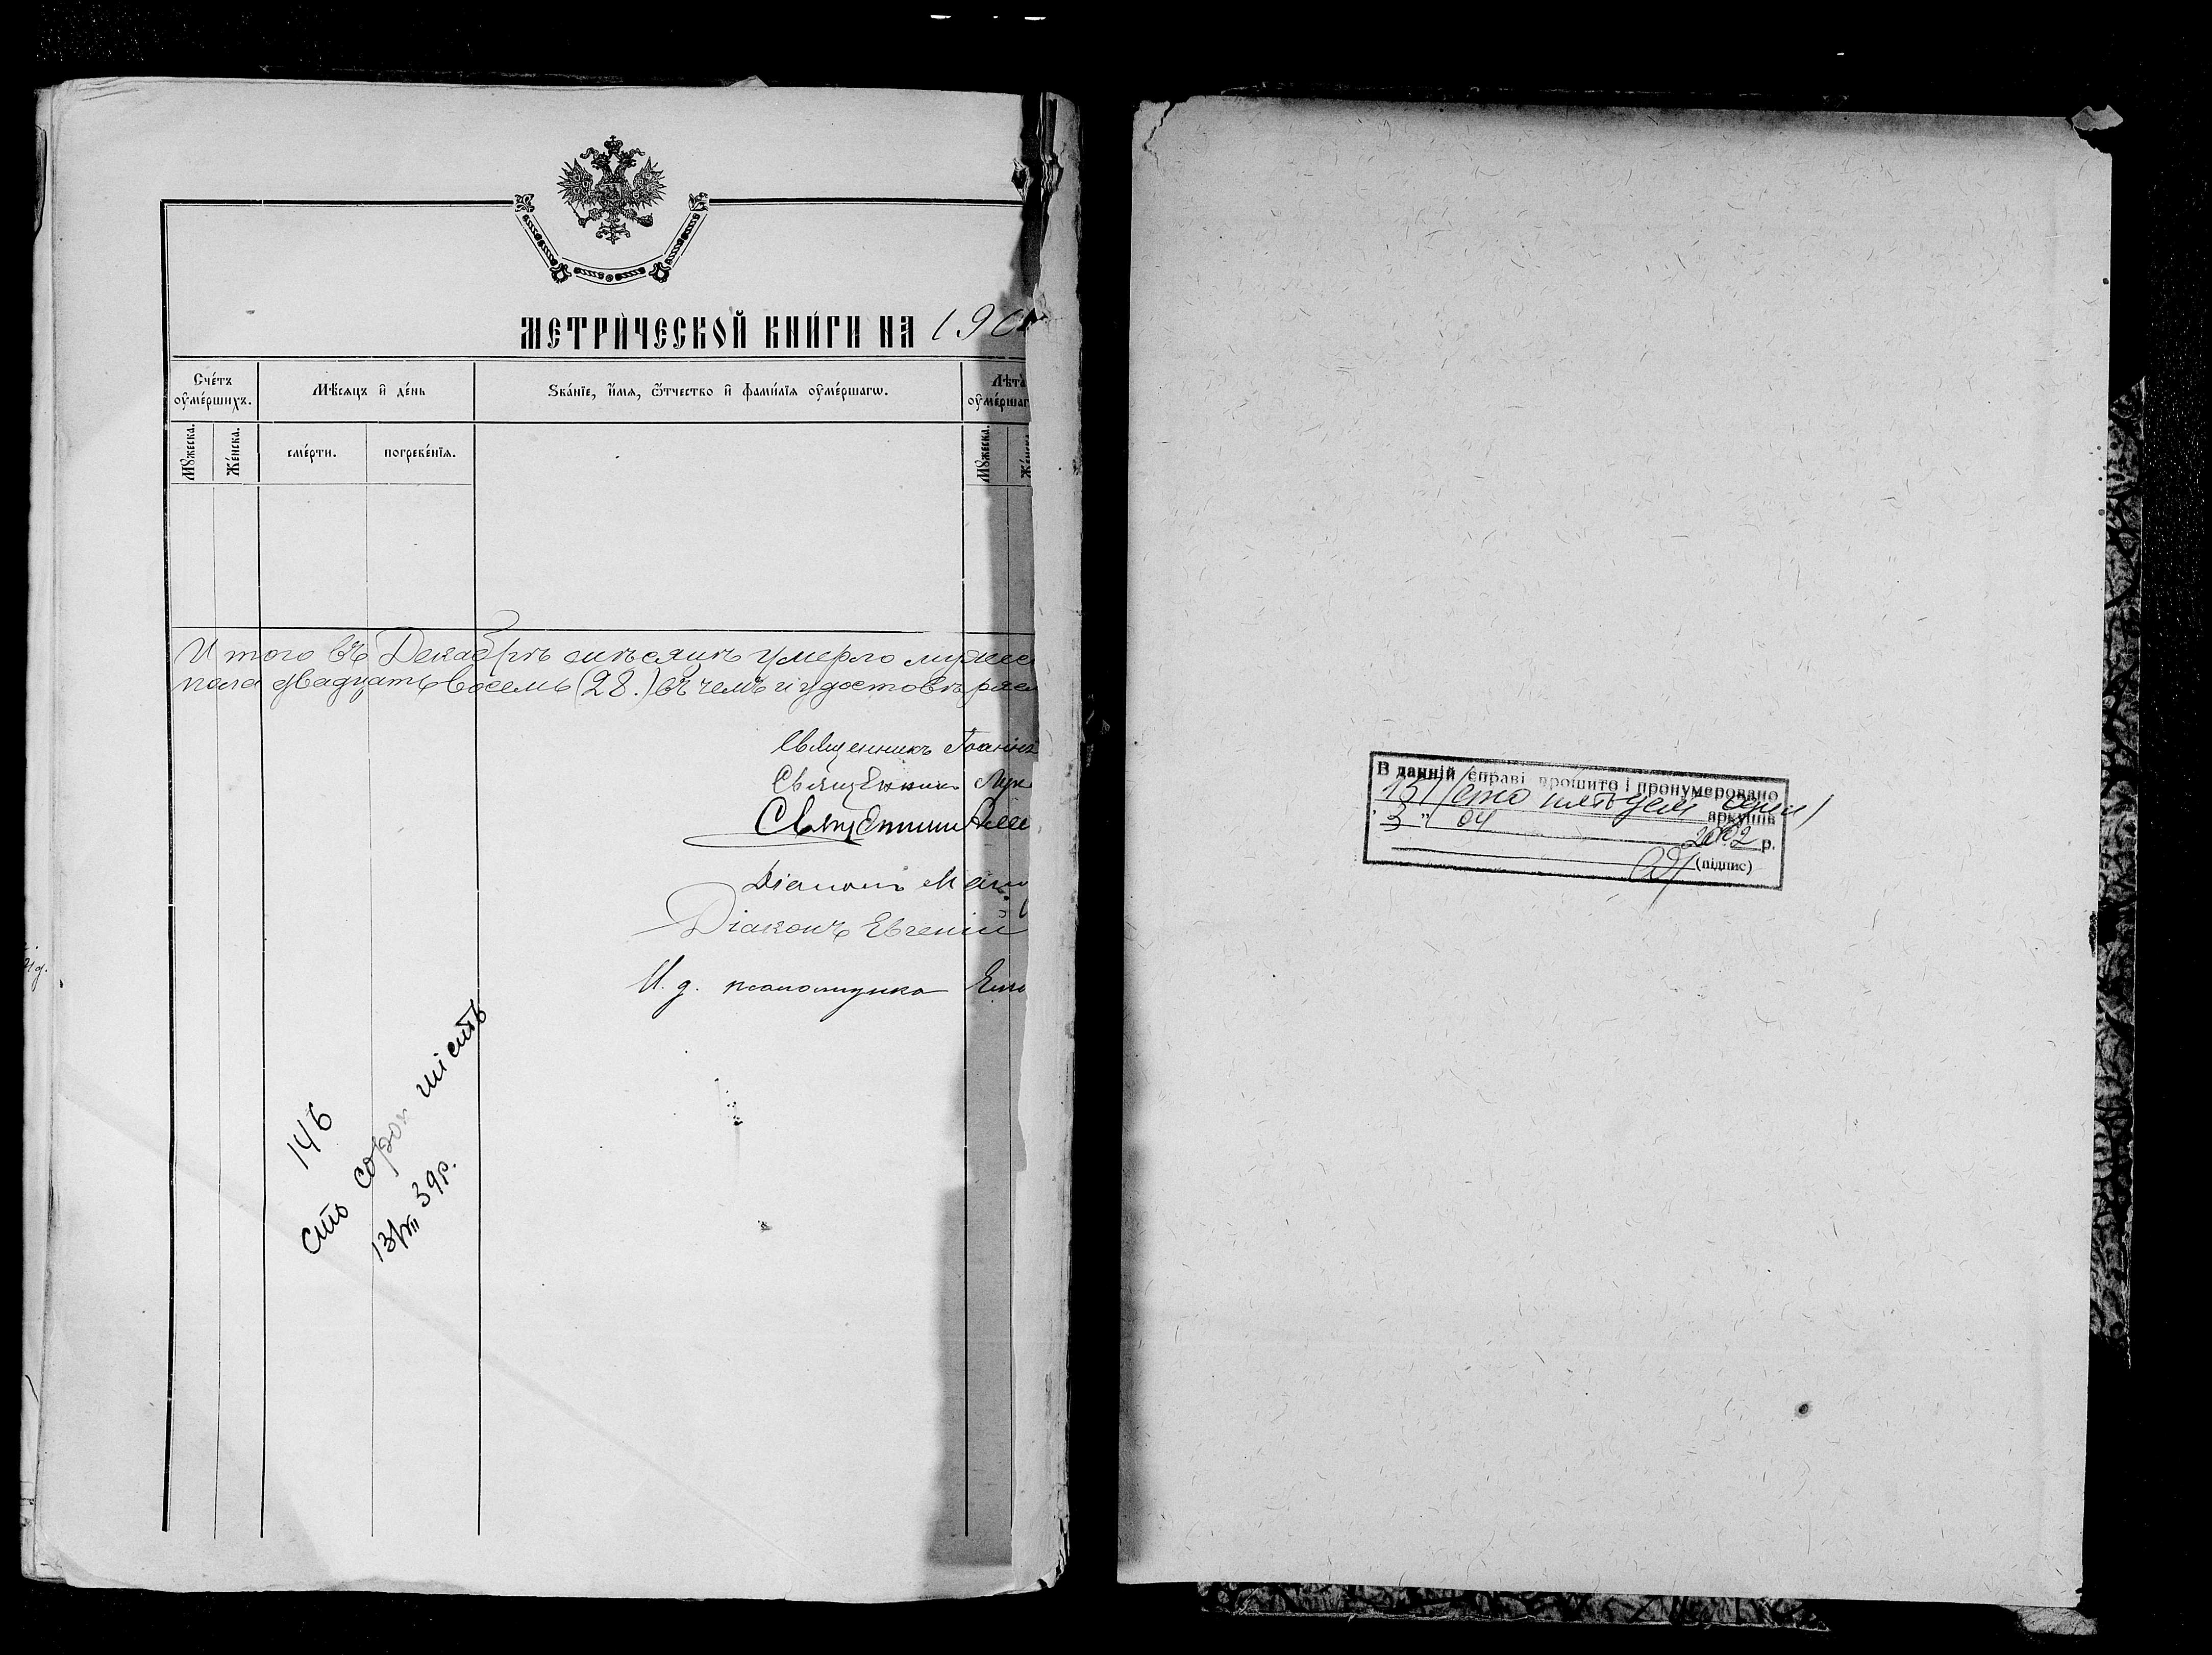 МЕТРИ́ЧЕСКОЙ КНИ́ГИ НА 190
Сче́тъ оу҆ме́ршихъ.
Мѣ́сяцъ и҆ де́нь
Зва́нїе, и҆́мѧ, ѻ҆́тчество и҆ фами́лїѧ оу҆ме́ршагѡ.
Лѣта̀ оу҆ме́ршаг
Мꙋ́жеска.
Же́нска.
сме́рти.
погребе́нїѧ.
Мꙋ́жеска.
Же́нска
Итого въ Декабрѣ мѣсяцѣ умерло мужес
пола двадцать восемь (28.) въ чемъ и удостовѣряем
Священникъ Іоаннъ
Священникъ Лук
Священникъ
Діаконъ
Діаконъ Евгеній
И. д. псаломщика
146
сто сорок шість
13/VII 39р.
В данній справі прошито і пронумеровано
157 (сто п'ятдесят сім) аркушів
" 3 " 04 2002 р.
(підпис)